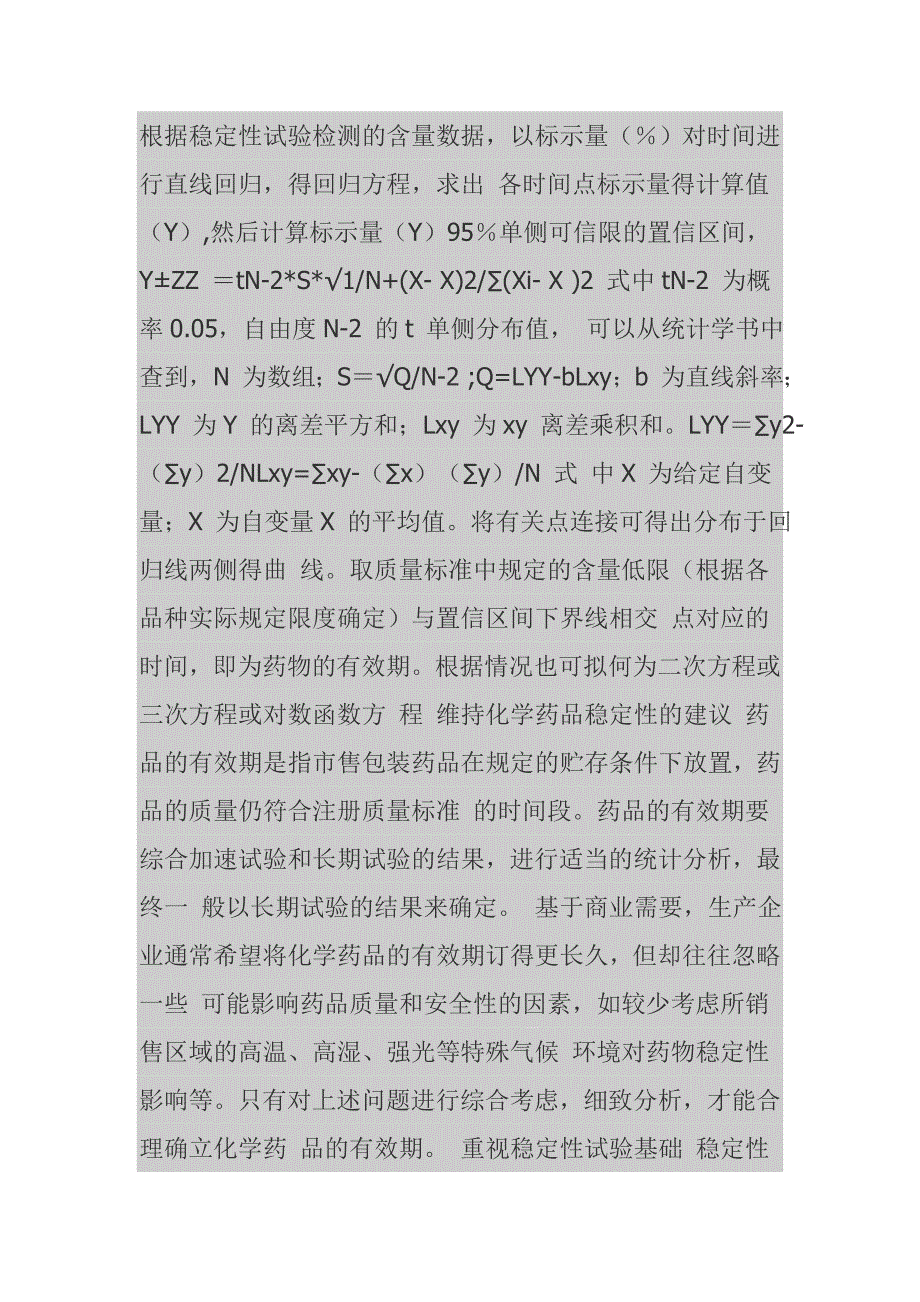 根据稳定性试验检测的含量数据，以标示量（%）对时间进
行直线回归，得回归方程，求出 各时间点标示量得计算值
（Y）,然后计算标示量（Y）95%单侧可信限的置信区间，
Y±ZZ ＝tN-2*S*√1/N+(X- X)2/∑(Xi- X )2 式中 tN-2 为概
率 0.05，自由度 N-2 的 t 单侧分布值， 可以从统计学书中
查到，N 为数组；S＝√Q/N-2 ;Q=LYY-bLxy；b 为直线斜率；
LYY 为 Y 的离差平方和；Lxy 为 xy 离差乘积和。LYY＝∑y2-
（∑y）2/NLxy=∑xy-（∑x）（∑y）/N 式 中 X 为给定自变
量；X 为自变量 X 的平均值。将有关点连接可得出分布于回
归线两侧得曲 线。取质量标准中规定的含量低限（根据各
品种实际规定限度确定）与置信区间下界线相交 点对应的
时间，即为药物的有效期。根据情况也可拟何为二次方程或
三次方程或对数函数方 程 维持化学药品稳定性的建议 药
品的有效期是指市售包装药品在规定的贮存条件下放置，药
品的质量仍符合注册质量标准 的时间段。药品的有效期要
综合加速试验和长期试验的结果，进行适当的统计分析，最
终一 般以长期试验的结果来确定。 基于商业需要，生产企
业通常希望将化学药品的有效期订得更长久，但却往往忽略
一些 可能影响药品质量和安全性的因素，如较少考虑所销
售区域的高温、高湿、强光等特殊气候 环境对药物稳定性
影响等。只有对上述问题进行综合考虑，细致分析，才能合
理确立化学药 品的有效期。 重视稳定性试验基础 稳定性